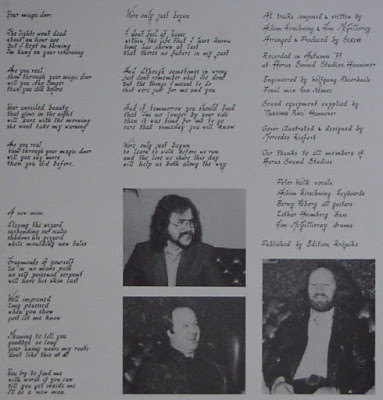 Your magic door.
The lights went dead
about an hour ago
but I kept on
I'm on your returning
Are you real
thru' through your magic door
will you stay longer
than you did before
Your unveiled beauty
that glows in the night
will leave with the morning
she wont take my warning
Are you real
thru' through your magic door
will you say more
than you did before.
A new man.
Playing the wizard
suspending out nails
shadows his
while new tales
Fragments of yourself
tu'in us masks
so self poisoned serpent
will leave his skin last
Well improved
long placened
when you show
just let me know
Meaning to tell you
goodbye so long
your using wears my
'dont like this at all
You try to find me
with words if you can
till you get inside me
I'll be a new man.
Were only just begun
I dont feel at home
within the life that I have known
time has shown at last
that there's no future in my past
And although sometimes in wrong
just dont remember what I've done
but the things I meant to do
that were just for me and you
And if tommorrow you should find
that I'm no longer by your side
then it was time for me to go
sure that someday you will know
Were only just begun
to learn to walk before we run
and the love we share this day
will help us both along the way.
All tracks composed & written by
Achim Kirschning & Jim McGillivray
Arranged & Produced by Eckst
Recorded in Autumn '79
at Horus Sound Studios, Hannover
Engineered by Wolfgang
Final mix Jan
Sound equipment supplied by
Hannover
Cover illustrated & designed by
Mercedes Riefert
Our thanks to all members of
Horus Sound Studios
Peter Wolk vocals
Achim Kirschning Keyboards
Berny all guitars
Lothar Heimberg Bass
Jim McGillivray drums
Published by Edition